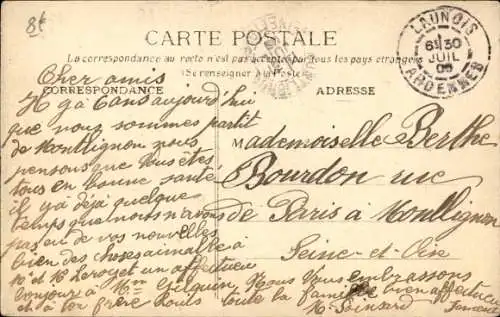 8f
CARTE POSTALE
La correspondance au recto n'est pas acceptée par tous les pays étrangers
(Se renseigner à la Poste)
CORRESPONDANCE
ADRESSE
LAUNOIS
6 30
JUIL
09
ARDENNES
Cher amis
Il y a 6 ans aujourd'hui
que nous sommes partit
de Montlignon nous
pensons que vous êtes
tous en bonne santé
il y a déjà quelque
temps que nous n'avons
pas eu de vos nouvelles
bien des choses aimable à
Mr et Me Leroy et un affectueu
bonjour à Mme
et à ton frère Louis
Mademoiselle Berthe
Bourdon rue
de Paris à Montlignon
Seine-et-Oise
Nous Vous embrassons
toute la famille bien affectueu